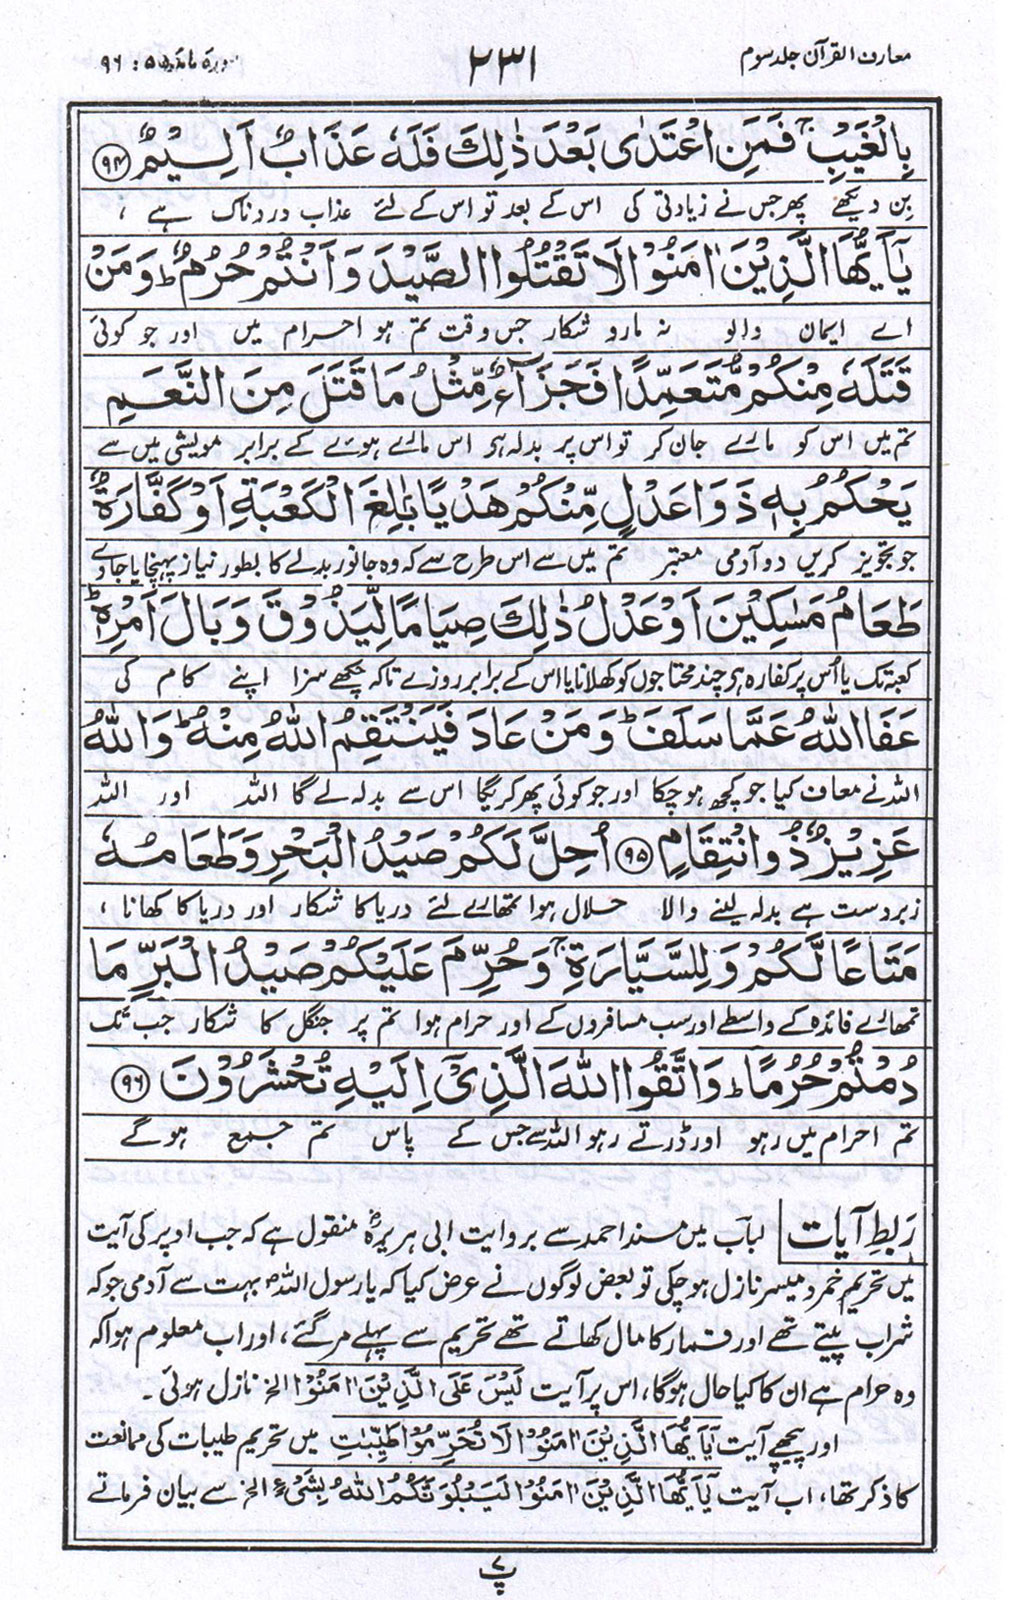 معارف القرآن جلد سوم
۲۳۱
سورۃ مائدہ ۵: ۹۶
بِالْغَيْبِ ۚ فَمَنِ اعْتَدٰى بَعْدَ ذٰلِكَ فَلَهٗ عَذَابٌ اَلِيْمٌ ﴿۹۴﴾
بِن دیکھے پھر جس نے زیادتی کی اس کے بعد تو اس کے لئے عذاب دردناک ہے ،
يٰٓاَيُّهَا الَّذِيْنَ اٰمَنُوْا لَا تَقْتُلُوا الصَّيْدَ وَاَنْتُمْ حُرُمٌ ؕ وَمَنْ
اے ایمان والو نہ مارو شکار جس وقت تم ہو احرام میں اور جو کوئی
قَتَلَهٗ مِنْكُمْ مُّتَعَمِّدًا فَجَزَآءٌ مِّثْلُ مَا قَتَلَ مِنَ النَّعَمِ
تم میں اس کو مارے جان کر تو اس پر بدلہ ہو اس مارے ہوئے کے برابر مویشی میں سے
يَحْكُمُ بِهٖ ذَوَا عَدْلٍ مِّنْكُمْ هَدْيًا بٰلِغَ الْكَعْبَةِ اَوْ كَفَّارَةٌ
جو تجویز کریں دو آدمی معتبر تم میں سے اس طرح سے کہ وہ جانور بدلے کا بطور نیاز پہنچایا جاوے
طَعَامُ مَسٰكِيْنَ اَوْ عَدْلُ ذٰلِكَ صِيَامًا لِّيَذُوْقَ وَبَالَ اَمْرِهٖ ؕ
کعبہ تک یا اُس پر کفارہ ہو چند محتاجوں کو کھلانا یا اس کے برابر روزے تاکہ چکھے سزا اپنے کام کی
عَفَا اللّٰهُ عَمَّا سَلَفَ ؕ وَمَنْ عَادَ فَيَنْتَقِمُ اللّٰهُ مِنْهُ ؕ وَاللّٰهُ
اللہ نے معاف کیا جو کچھ ہو چکا اور جو کوئی پھر کریگا اس سے بدلہ لے گا اللہ اور اللہ
عَزِيْزٌ ذُو انْتِقَامٍ ﴿۹۵﴾ اُحِلَّ لَكُمْ صَيْدُ الْبَحْرِ وَطَعَامُهٗ
زبردست ہے بدلہ لینے والا حلال ہوا تمھارے لئے دریا کا شکار اور دریا کا کھانا ،
مَتَاعًا لَّكُمْ وَلِلسَّيَّارَةِ ۚ وَحُرِّمَ عَلَيْكُمْ صَيْدُ الْبَرِّ مَا
تمھارے فائدہ کے واسطے اور سب مسافروں کے اور حرام ہوا تم پر جنگل کا شکار جب تک
دُمْتُمْ حُرُمًا ؕ وَاتَّقُوا اللّٰهَ الَّذِيْٓ اِلَيْهِ تُحْشَرُوْنَ ﴿۹۶﴾
تم احرام میں رہو اور ڈرتے رہو اللہ سے جس کے پاس تم جمع ہو گے
ربطِ آیات لباب میں مسند احمد سے بروایت ابی ہریرہؓ منقول ہے کہ جب اوپر کی آیت
میں تحریم خمر و میسر نازل ہو چکی تو بعض لوگوں نے عرض کیا کہ یا رسول اللہؐ بہت سے آدمی جو کہ
شراب پیتے تھے اور قمار کا مال کھاتے تھے تحریم سے پہلے مر گئے ، اور اب معلوم ہوا کہ
وہ حرام ہے ان کا کیا حال ہوگا ، اس پر آیت لَيْسَ عَلَى الَّذِيْنَ اٰمَنُوْا الخ نازل ہوئی ۔
اور پیچھے آیت يٰٓاَيُّهَا الَّذِيْنَ اٰمَنُوْا لَا تُحَرِّمُوْا طَيِّبٰتِ میں تحریم طیبات کی ممانعت
کا ذکر تھا ، اب آیت يٰٓاَيُّهَا الَّذِيْنَ اٰمَنُوْا لَيَبْلُوَنَّكُمُ اللّٰهُ بِشَيْءٍ الخ سے بیان فرماتے